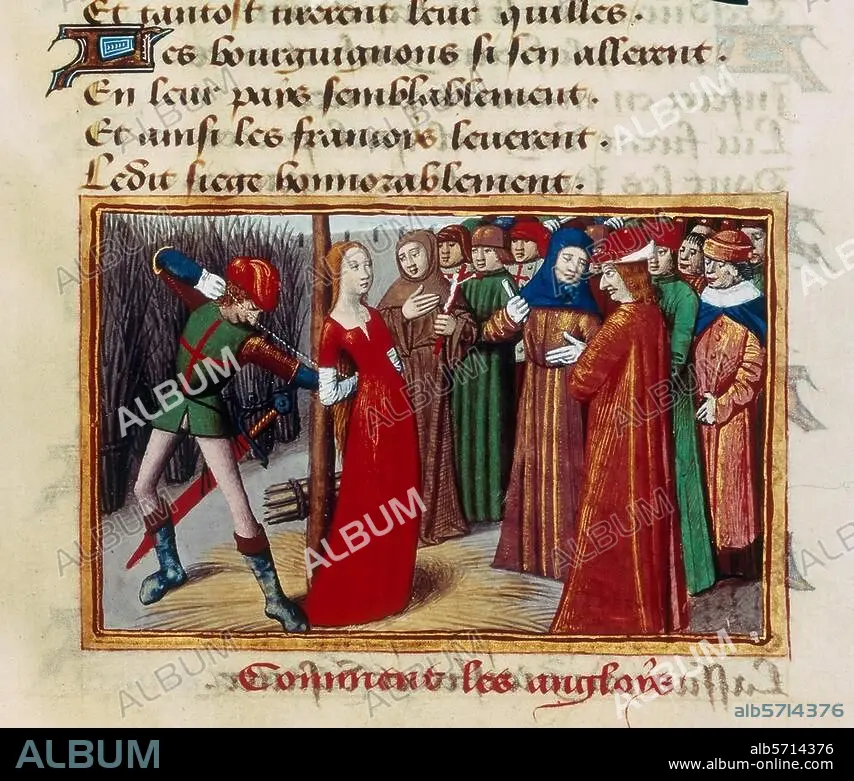 Et tantost tirerent leur quilles.
Les bourguignons si sen allerent.
En leur pays semblablement.
Et ainsi les francoys leuerent.
Ledit siege honnorablement.
Comment les angloys
alb5714376
ALBUM
alb5714376
www.album-online.com